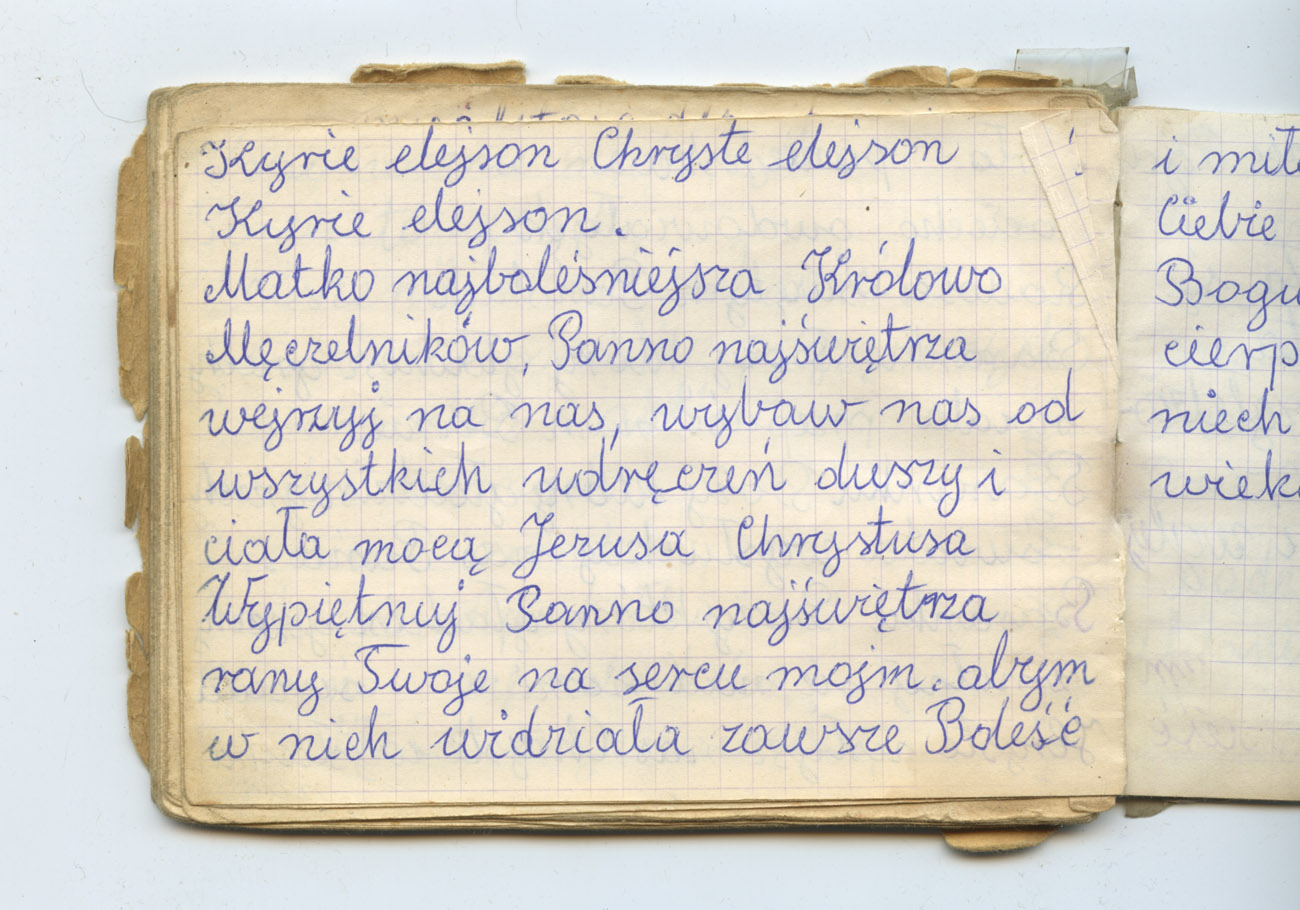 Kyrie elejson Chryste elejson
Kyrie elejson.
Matko najboleśniejsza Królowo
Męczelników, Panno najświętrza
wejrzyj na nas, wybaw nas od
wszystkich udręczeń duszy i
ciała mocą Jezusa Chrystusa
Wypiętnuj Panno najświętrza
rany Twoje na sercu mojm. abym
w nich widziała zawsze Boleść
i miło
Ciebie
Bogu
cierp
niech
wiek